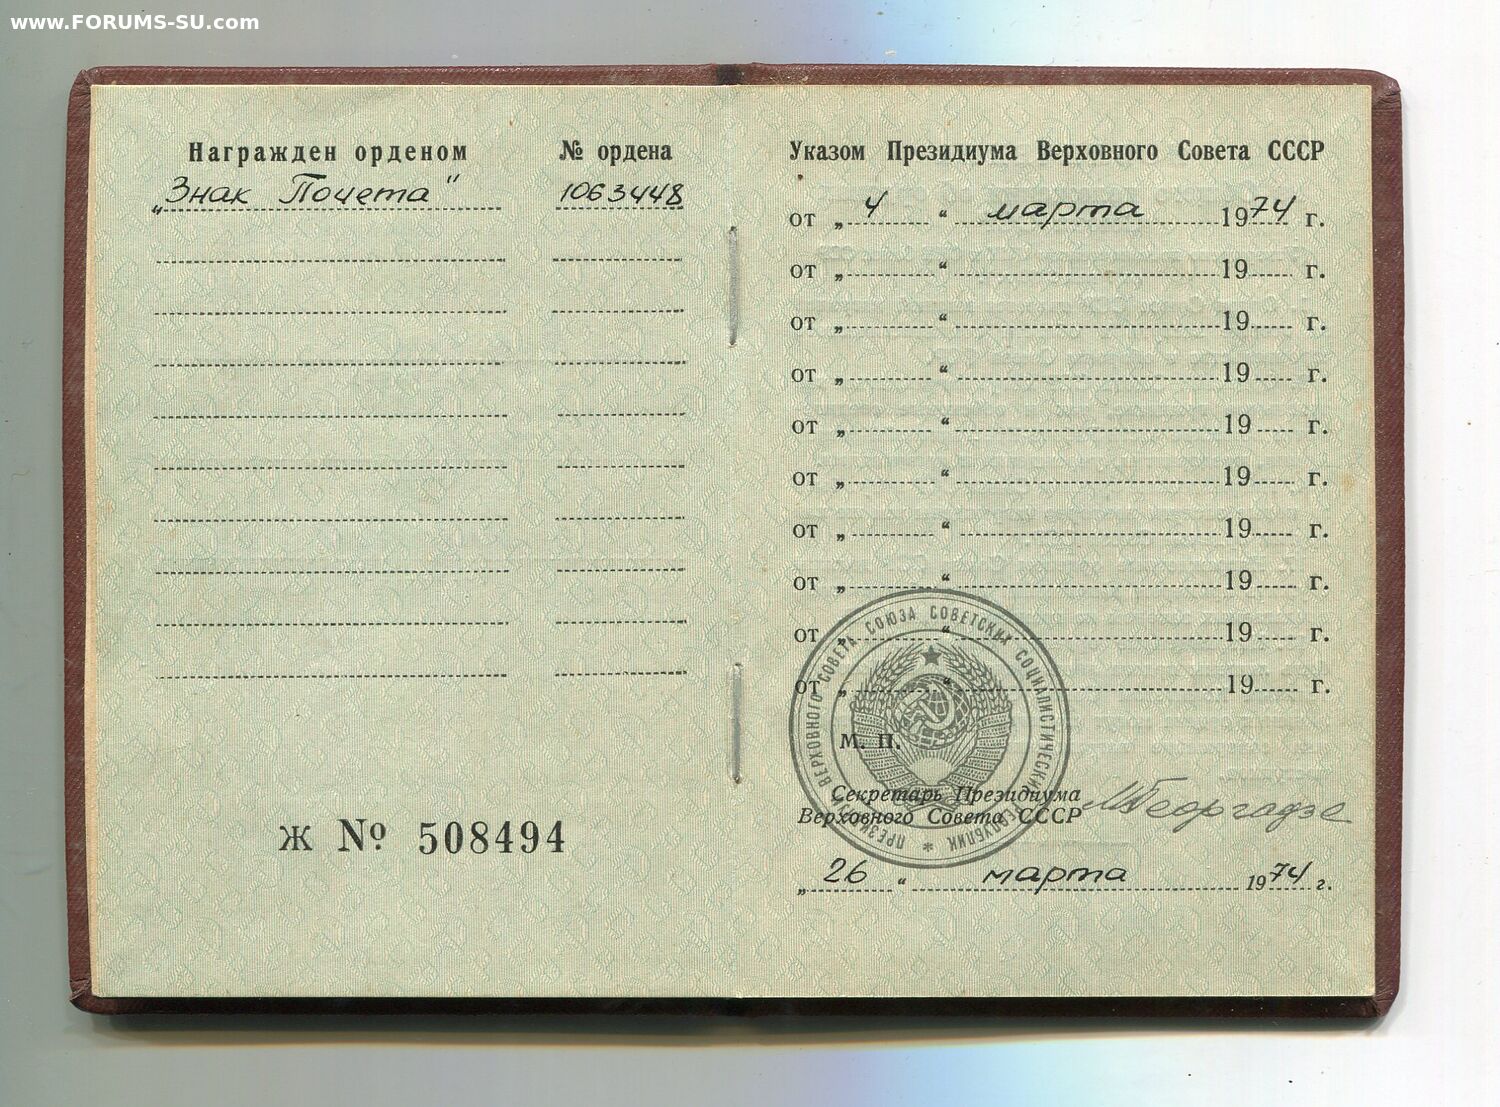 www.FORUMS-SU.com
Награжден орденом № ордена
„Знак Почета" 1063448
Ж № 508494
Указом Президиума Верховного Совета СССР
от „ 4 “ марта 1974 г.
от „ “ 19 г.
от „ “ 19 г.
от „ “ 19 г.
от „ “ 19 г.
от „ “ 19 г.
от „ “ 19 г.
от „ “ 19 г.
от „ “ 19 г.
от „ “ 19 г.
ПРЕЗИДИУМ ВЕРХОВНОГО СОВЕТА СОЮЗА СОВЕТСКИХ СОЦИАЛИСТИЧЕСКИХ РЕСПУБЛИК *
М. П.
Секретарь Президиума
Верховного Совета СССР МГеоргадзе
„ 26 “ марта 1974 г.